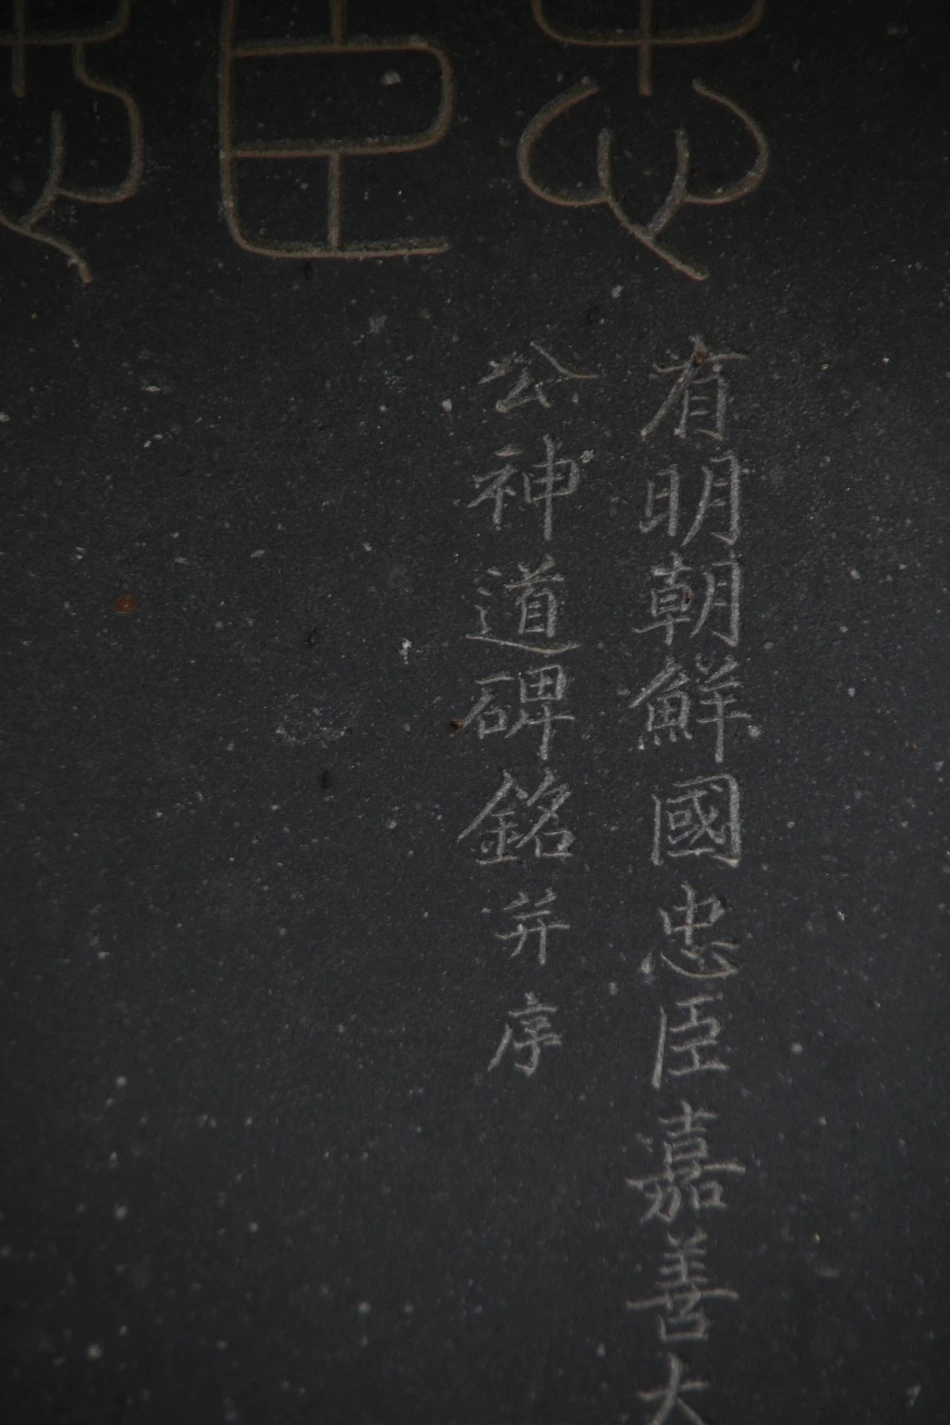 忠臣
有明朝鮮國忠臣嘉善大
公神道碑銘并序